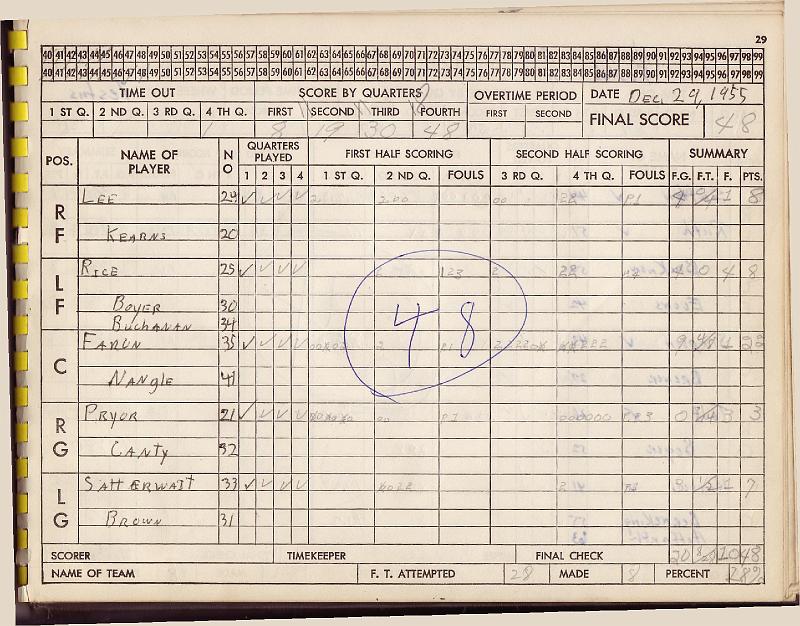 29
40 41 42 43 44 45 46 47 48 49 50 51 52 53 54 55 56 57 58 59 60 61 62 63 64 65 66 67 68 69 70 71 72 73 74 75 76 77 78 79 80 81 82 83 84 85 86 87 88 89 90 91 92 93 94 95 96 97 98 99
40 41 42 43 44 45 46 47 48 49 50 51 52 53 54 55 56 57 58 59 60 61 62 63 64 65 66 67 68 69 70 71 72 73 74 75 76 77 78 79 80 81 82 83 84 85 86 87 88 89 90 91 92 93 94 95 96 97 98 99
TIME OUT SCORE BY QUARTERS OVERTIME PERIOD DATE DEC. 29, 1955
1 ST Q. 2 ND Q. 3 RD Q. 4 TH Q. FIRST SECOND THIRD FOURTH FIRST SECOND FINAL SCORE 48
1 8 19 30 48
POS. NAME OF PLAYER NO QUARTERS PLAYED FIRST HALF SCORING SECOND HALF SCORING SUMMARY
1 2 3 4 1 ST Q. 2 ND Q. FOULS 3 RD Q. 4 TH Q. FOULS F.G. F.T. F. PTS.
RF LEE 24 ✓ ✓ ✓ ✓ 2 200 00 22 P1 4 0/4 1 8
KEARNS 20
LF RICE 25 ✓ ✓ ✓ ✓ 123 2 22 4 0 4 8
BOYER 30
BUCHANAN 34
48
C FARUN 35 ✓ ✓ ✓ ✓ 2 9 4 22
NANGLE 41
RG PRYOR 21 ✓ ✓ ✓ ✓ 00 000000 0 3 3
CANTY 52
LG SATTERWAIT 33 ✓ ✓ ✓ ✓ 2 1/2 1 7
BROWN 31
SCORER TIMEKEEPER FINAL CHECK 20 10 48
NAME OF TEAM F. T. ATTEMPTED 28 MADE 8 PERCENT 28%